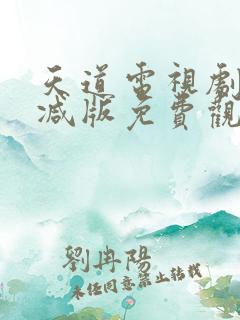 天道電視劇
減版免費觀
劉冉陽
未經同意禁止轉載